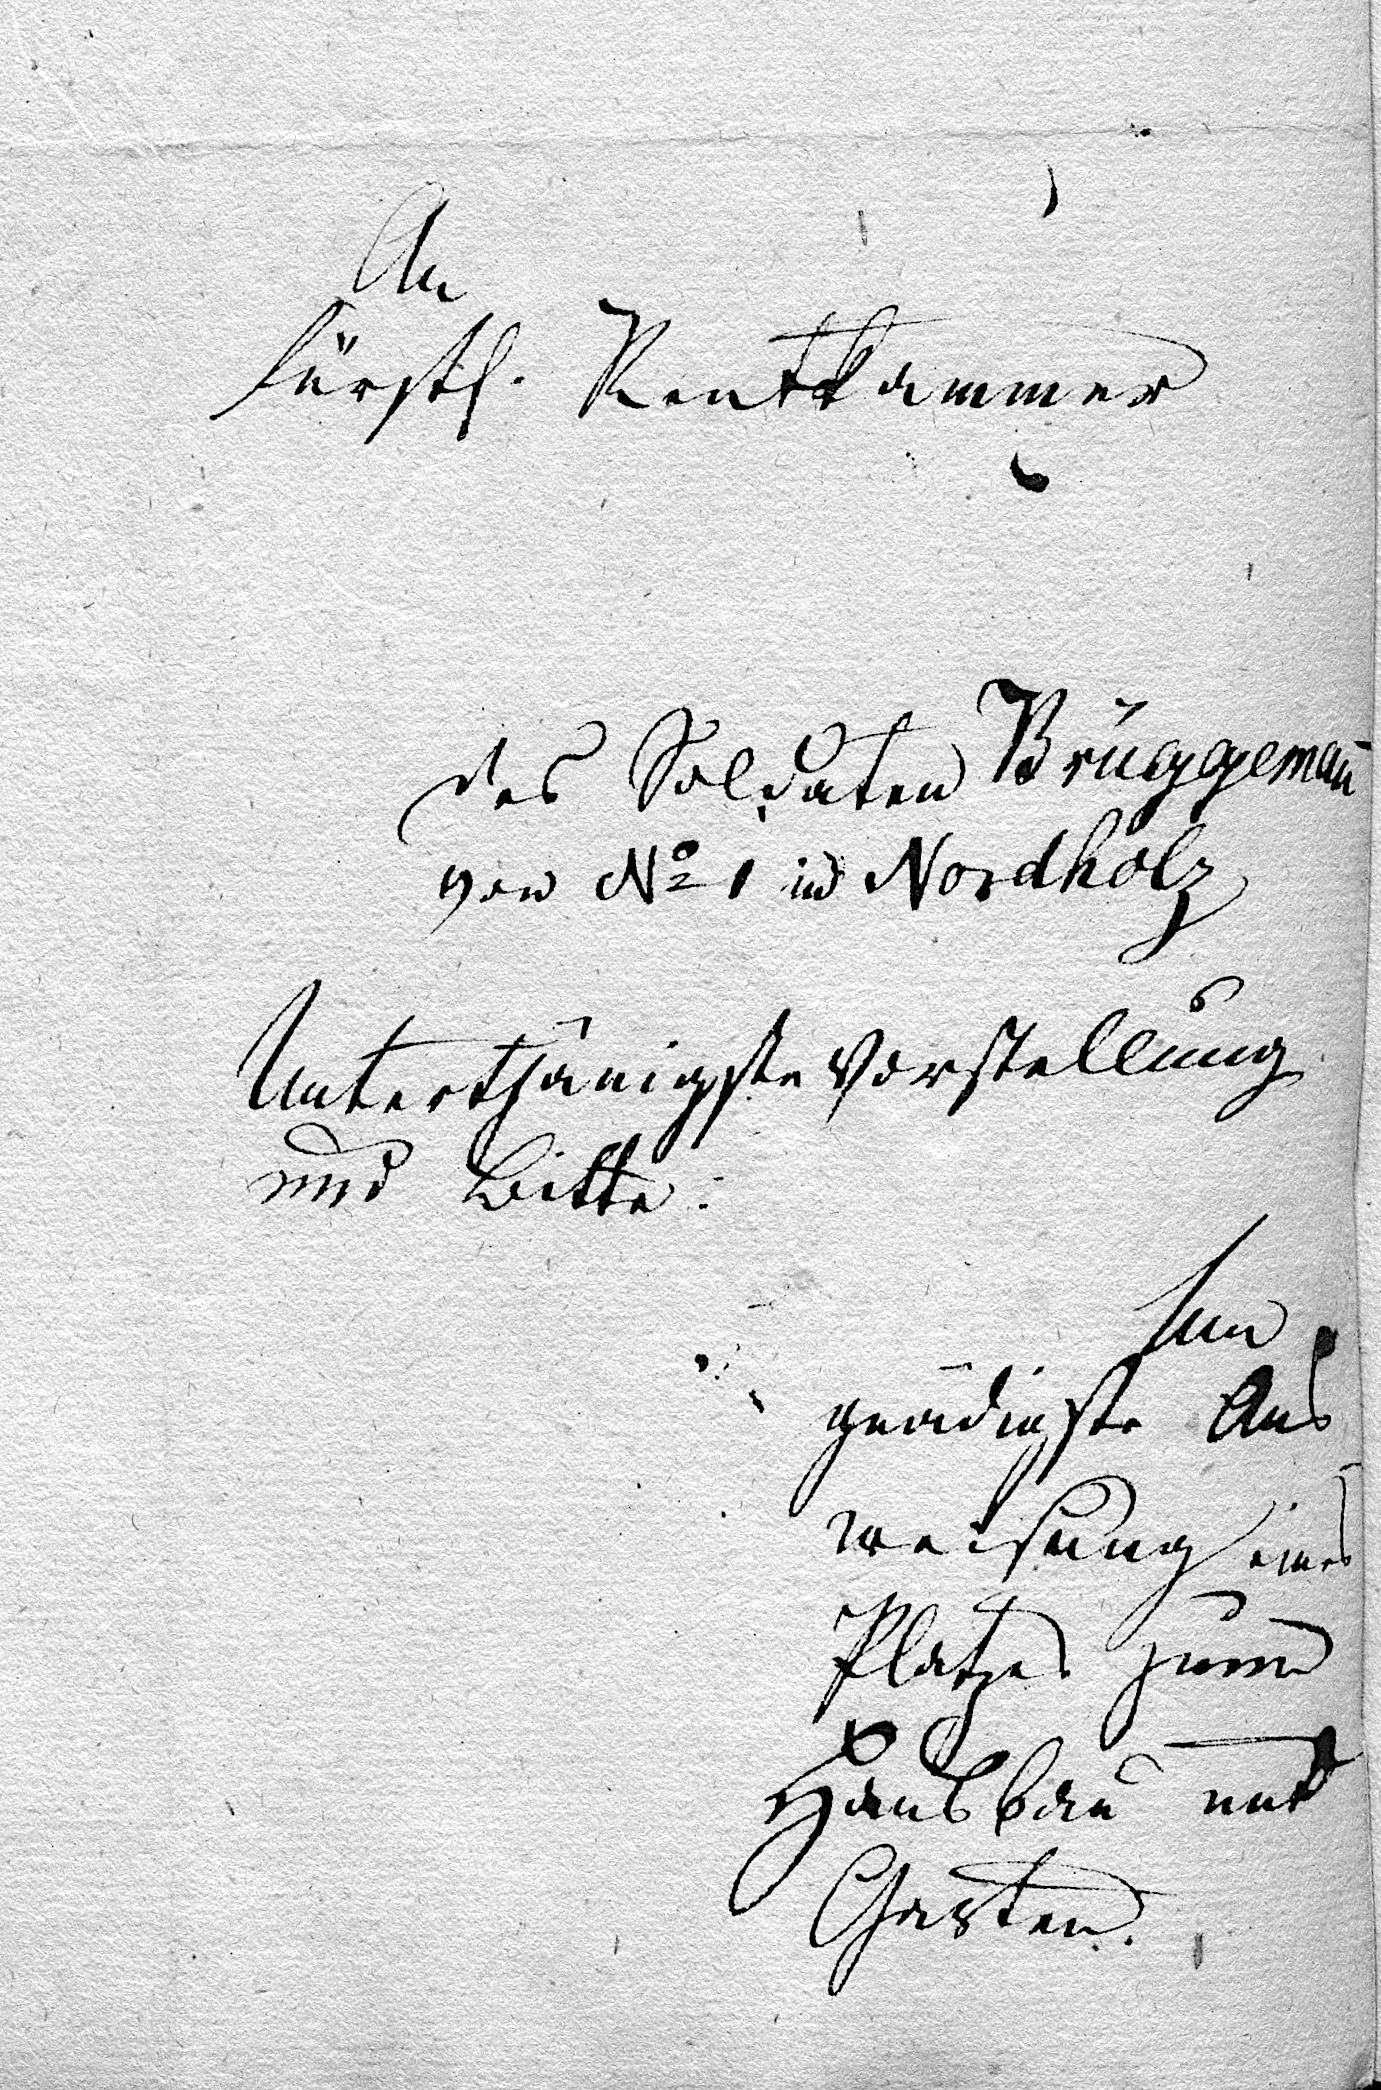 An
Fürstl. Rentkammer
des Soldaten Brüggeman̄
von No 1 in Nordholz
Unterthänigste Vorstellung
und Bitte:
um
gnädigste Aus
weisung eines
Platzes zum
Hausbau und
Garten.